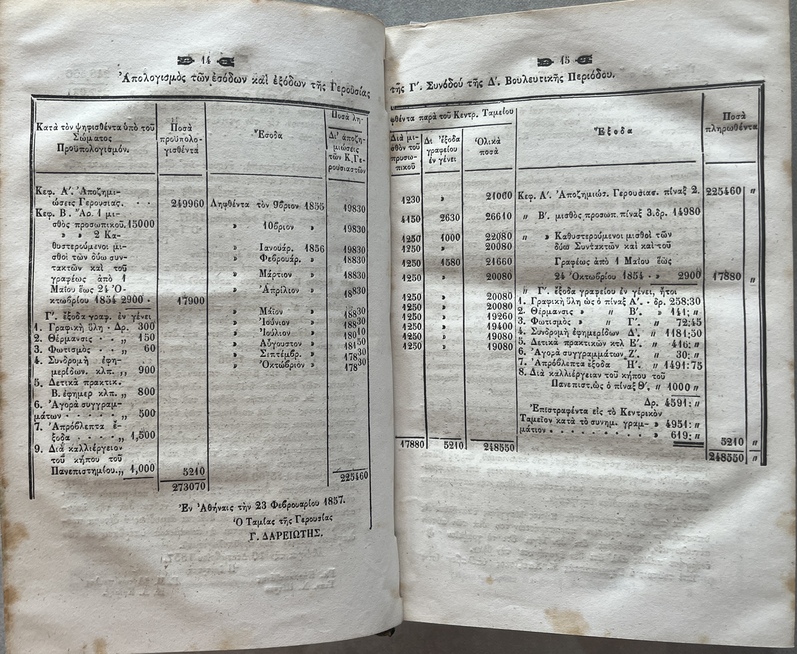 14
Ἀπολογισμὸς τῶν ἐσόδων καὶ ἐξόδων τῆς Γερουσίας
Κατὰ τὸν ψηφισθέντα ὑπὸ τοῦ
Σώματος
Προϋπολογισμόν.
Ποσὰ
προϋπολο-
γισθέντα
Ἔσοδα
Ποσὰ λη-
Δι' ἀποζη-
μιώσεις
τῶν Κ. Γε-
ρουσιαστῶν
Κεφ. Α'. Ἀποζημι-
ώσεις Γερουσίας. . . 249960 Ληφθέντα τὸν 9βριον 1855 19830
Κεφ. Β. Ἄρ. 1 μι-
σθὸς προσωπικοῦ.15000 » 10βριον » 19830
» » 2 Κα-
θυστερούμενοι μι- » Ἰανουάρ. 1856 19830
σθοὶ τῶν δύω συν- » Φεβρουάρ. » 18830
τακτῶν καὶ τοῦ
γραφέως ἀπὸ 1 » Μάρτιον » 18830
Μαΐου ἕως 24 Ὀ- » Ἀπρίλιον » 18830
κτωβρίου 1854 2900 . 17900
Γ'. ἔξοδα γραφ. ἐν γένει » Μάϊον » 18830
1. Γραφικὴ ὕλη . Δρ. 300 » Ἰούνιον » 18830
2. Θέρμανσις . . „ 150 » Ἰούλιον » 18010
3. Φωτισμὸς . . „ 60 » Αὔγουστον » 18150
4. Συνδρομὴ ἐφη- » Σεπτέμβρ. » 17830
μερίδων. κλπ. „ 900 » Ὀκτώβριον » 17830
5. Δετικὰ πρακτικ.
Β. ἐφημερ κλπ. „ 800
6. Ἀγορὰ συγγραμ-
μάτων . . . . „ 500
7. Ἀπρόβλεπτα ἔ-
ξοδα . . . . „ 1,500
9. Διὰ καλλιέργειον
τοῦ κήπου τοῦ
Πανεπιστημίου.„ 1,000 5210
273070 225460
Ἐν Ἀθήναις τὴν 23 Φεβρουαρίου 1857.
Ὁ Ταμίας τῆς Γερουσίας
Γ. ΔΑΡΕΙΩΤΗΣ.
15
τῆς Γ'. Συνόδου τῆς Δ'. Βουλευτικῆς Περιόδου.
φθέντα παρὰ τοῦ Κεντρ. Ταμείου
Διὰ μι-
σθὸν τοῦ
προσω-
πικοῦ
Δι' ἔξοδα
γραφείου
ἐν γένει
Ὁλικὰ
ποσὰ
Ἔξοδα
Ποσὰ
πληρωθέντα
1230 » 21060 Κεφ. Α'. Ἀποζημιώσ. Γερουσιασ. πίναξ 2. 225460 „
4150 2630 26610 „ Β'. μισθὸς προσωπ. πίναξ 3. δρ. 14980
1250 1000 22080 „ » Καθυστερούμενοι μισθοὶ τῶν
1250 » 20080 δύω Συντακτῶν καὶ καὶ τοῦ
1250 1580 21660 Γραφέως ἀπὸ 1 Μαΐου ἕως
1250 » 20080 24 Ὀκτωβρίου 1854 . » 2900 17880 „
„ Γ'. ἔξοδα γραφείου ἐν γένει, ἤτοι
1250 » 20080 1. Γραφικὴ ὕλη ὡς ὁ πίναξ Α'. . δρ. 258:30
1250 » 20080 2. Θέρμανσις » „ Β'. » 141: „
1250 » 19260 3. Φωτισμὸς » „ Γ'. „ 72:45
1250 » 19400 4. Συνδρομὴ ἐφημερίδων Δ'. „ 1181:50
1250 » 19080 5. Δετικὰ πρακτικῶν κτλ Ε'. „ 416: „
1250 » 19080 6. Ἀγορὰ συγγραμμάτων Ζ'. „ 30: „
7. Ἀπρόβλεπτα ἔξοδα Η'. „ 1491:75
8. Διὰ καλλιέργειαν τοῦ κήπου τοῦ
Πανεπιστ. ὡς ὁ πίναξ Θ'. „ 1000 „
Δρ. 4591: „
Ἐπεστράφεντα εἰς τὸ Κεντρικὸν
Ταμεῖον κατὰ τὸ συνημ. γραμ- » 4951: „
μάτιον . . . . . . . . . „ 619: „
17880 5210 248550 5210 „
248550 „